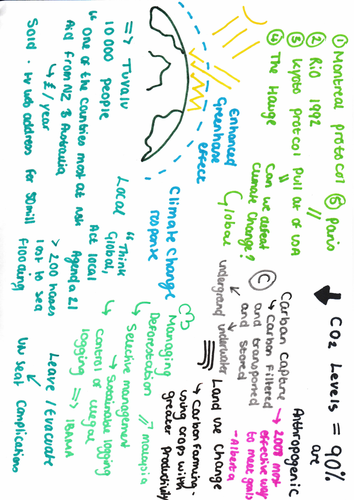 ① Montreal protocol
② Rio 1992
③ Kyoto protocol Pull out of USA
④ The Hauge
⑤ Paris
Can we defeat
climate change?
Global
Enhanced
Greenhouse
effect
Climate change
response
=> Tuvalu
10 000 people
" One of the countries most at risk
Aid from NZ & Australia
↳ £/year
Sold .tv web address for 50mill
Local
"Think
Global,
Act local
Agenda 21
> 200 homes
lost to sea
flooding
Leave / Evacuate
UN seat complications
CO2 Levels = 90%
are
Anthropogenic
Carbon capture
↳ Carbon Filtered
and transported
and stored
underground underwater
→ 2008 most
effective way
to make goals
- Alberta
Land use change
↳ Carbon farming -
using crops with
greater productivity
Managing
Deforestation // malaysia
↳ Selective management
↳ Sustainable logging
control of illegal
logging =>